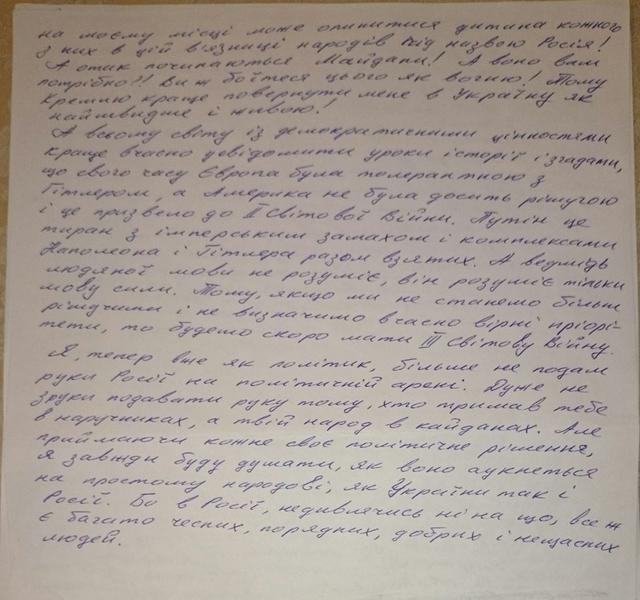 на моєму місці може опинитися дитина кожного
з них в цій в'язниці народів під назвою Росія!
А отак починаються Майдани! А воно вам
потрібно?! Ви ж боїтеся цього як вогню! Тому
Кремлю краще повернути мене в Україну як
найшвидше і живою!
А всьому світу із демократичними цінностями
краще вчасно усвідомити уроки історії і згадати,
що свого часу Європа була толерантною з
Гітлером, а Америка не була досить рішучою
і це призвело до ІІ Світової Війни. Путін це
тиран з імперським замахом і комплексами
Наполеона і Гітлера разом взятих. А ведмідь
людяної мови не розуміє, він розуміє тільки
мову сили. Тому, якщо ми не станемо більш
рішучими і не визначимо вчасно вірні пріорі-
тети, то будемо скоро мати ІІІ Світову Війну.
Я, тепер вже як політик, більше не подам
руки Росії на політичній арені. Дуже не
зруки подавати руку тому, хто тримав тебе
в наручниках, а твій народ в кайданах. Але
приймаючи кожне своє політичне рішення,
я завжди буду думати, як воно аукнеться
на простому народові, як України так і
Росії. Бо в Росії, недивлячись ні на що, все ж
є багато чесних, порядних, добрих і нещасних
людей.